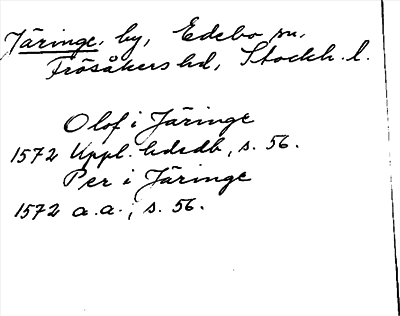 Järinge, by, Edebo sn.
Frösåkers hd, Stockh. l.
Olof i Järinge
1572 Uppl. hdrdb, s. 56.
Per i Järinge
1572 a.a., s. 56.